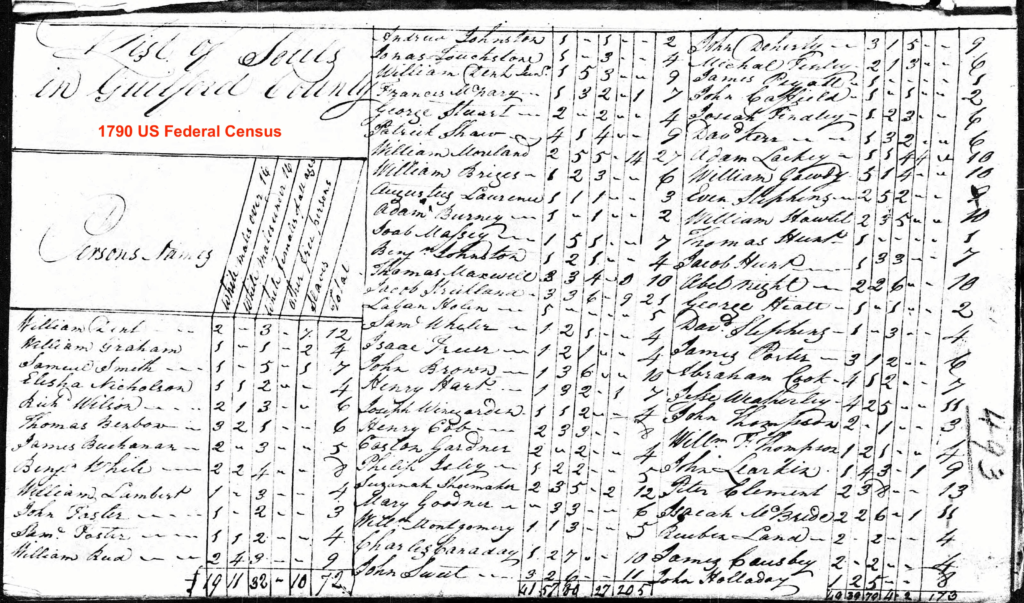 A List of Souls
in Guilford County
1790 US Federal Census
Persons Names
White males over 16
White males under 16
White females of all ages
other free persons
Slaves
Total
William Dent 2 - 3 - 7 12
William Graham 1 - 1 - 2 4
Samuel Smith 1 - 5 - 1 7
Elisha Nicholson 1 1 2 - - 4
Rich Wilson 2 1 3 - - 6
Thomas Benbow 3 2 1 - - 6
James Buchanan 2 - 3 - - 5
Benja White 2 2 4 - - 8
William Lambert 1 - 3 - - 4
John Foster 1 - 2 - - 3
Saml Foster 1 1 2 - - 4
William Rud 2 4 3 - - 9
19 11 32 - 10 72
Andrew Johnston 1 - 1 - - 2
Jonas Touchstone 1 - 3 - - 4
William Dent Junr 1 5 3 - - 9
Francis McNary 1 3 2 - 1 7
George Stuart 2 - 2 - - 4
Patrick Shaw 4 1 4 - - 9
William Moreland 2 5 5 - 27
William Briges 1 2 3 - - 6
Augustus Laurence 1 - 1 3
Adam Burney 1 - 1 - - 2
Joab Massey 1 5 1 - - 7
Benjn Johnston 1 2 1 - - 4
Thomas Maxwell 3 3 4 - 10
Jacob 3 6 - 9 21
5
Saml Wheler 1 2 1 - - 4
Isaac Greer 1 2 1 - - 4
John Brown 1 3 6 - - 10
Henry Hart 1 3 2 - 1 7
Joseph Winegarden 1 1 2 - - 4
Henry Cob 2 3 3 - - 8
Caston Gardner 2 - 2 - - 4
Philip Isley 1 2 2 - - 5
Suzanah Shumaker 2 3 5 - 2 12
Mary - 3 3 - - 6
Willm Montgomery 1 1 3 - - 5
Charles Caraday 1 2 7 - - 10
John Swet 3 2 6 - - 11
41 57 27 205
John Doherty 3 1 5 - - 9
Michal Finley 2 1 3 - - 6
James 1
John 2
Josiah Findley 1 2 3 - - 6
David Kerr 1 3 2 - - 6
Adam Lackey 1 1 4 4 - 10
William Gowdy 5 1 4 - - 10
Even Stephens 2 5 2 - -
William Hawlet 2 3 5 - - 10
Thomas Hunt 1
Jacob Hunt 1 3 3 - - 7
Abel Night 2 2 6 - - 10
George Hiatt 1 - 1 - - 2
David Stephens 1 - 3 - - 4
James Porter 3 1 2 - - 6
Abraham Cook 4 1 2 - - 7
Weatherley 4 2 5 - - 11
John Thompson 2 - 1 - - 3
Willm F Thompson 1 2 1 - - 4
John Larkin 1 4 3 - 1 9
Peter Clement 2 3 8 - - 13
Isaiah McBride 2 2 6 - 1 11
Reuben Land 2 - 2 - - 4
James Causbey 2 - 2 - - 4
John Holladay 1 2 5 - - 8
4 - 2 173
493